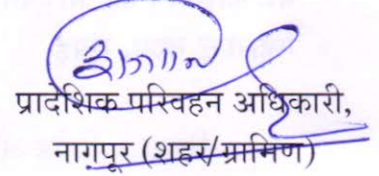 प्रादेशिक परिवहन अधिकारी,
नागपूर (शहर/ग्रामिण)